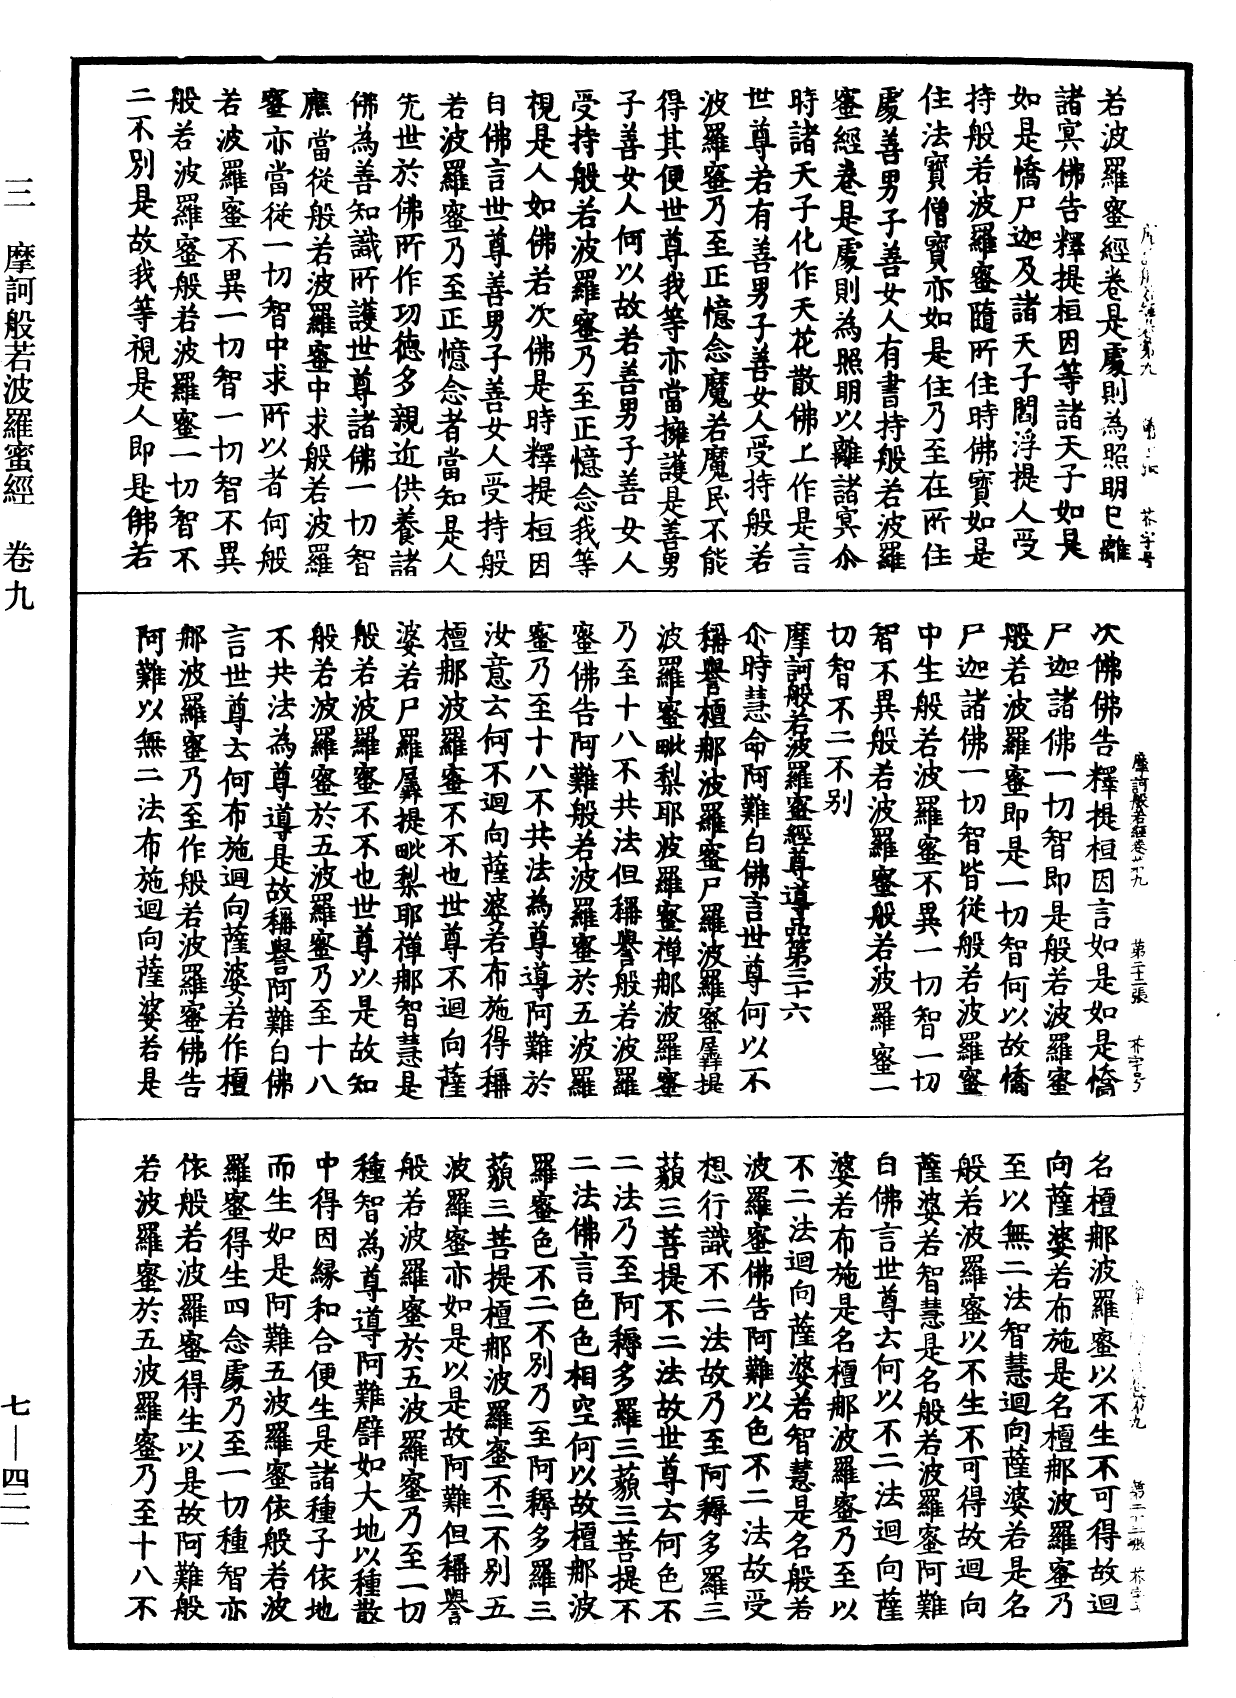 若波羅蜜經卷是處則為照明已離
諸冥佛告釋提桓因等諸天子如是
如是憍尸迦及諸天子閻浮提人受
持般若波羅蜜隨所住時佛寶如是
住法寶僧寶亦如是住乃至在所住
處善男子善女人有書持般若波羅
蜜經卷是處則為照明以離諸冥尒
時諸天子化作天花散佛上作是言
世尊若有善男子善女人受持般若
波羅蜜乃至正憶念魔若魔民不能
得其便世尊我等亦當擁護是善男
子善女人何以故若善男子善女人
受持般若波羅蜜乃至正憶念我等
視是人如佛若次佛是時釋提桓因
白佛言世尊善男子善女人受持般
若波羅蜜乃至正憶念者當知是人
先世於佛所作功德多親近供養諸
佛為善知識所護世尊諸佛一切智
應當從般若波羅蜜中求般若波羅
蜜亦當從一切智中求所以者何般
若波羅蜜不異一切智一切智不異
般若波羅蜜般若波羅蜜一切智不
二不別是故我等視是人即是佛若
摩訶般若經卷第九 第二十一張 芥字号
次佛佛告釋提桓因言如是如是憍
尸迦諸佛一切智即是般若波羅蜜
般若波羅蜜即是一切智何以故憍
尸迦諸佛一切智皆從般若波羅蜜
中生般若波羅蜜不異一切智一切
智不異般若波羅蜜般若波羅蜜一
切智不二不別
摩訶般若波羅蜜經尊導品第三十六
尒時慧命阿難白佛言世尊何以不
稱譽檀那波羅蜜尸羅波羅蜜羼提
波羅蜜毗梨耶波羅蜜禪那波羅蜜
乃至十八不共法但稱譽般若波羅
蜜佛告阿難般若波羅蜜於五波羅
蜜乃至十八不共法為尊導阿難於
汝意云何不迴向薩婆若布施得稱
檀那波羅蜜不不也世尊不迴向薩
婆若尸羅羼提毗梨耶禪那智慧是
般若波羅蜜不不也世尊以是故知
般若波羅蜜於五波羅蜜乃至十八
不共法為尊導是故稱譽阿難白佛
言世尊云何布施迴向薩婆若作檀
那波羅蜜乃至作般若波羅蜜佛告
阿難以無二法布施迴向薩婆若是
名檀那波羅蜜以不生不可得故迴
向薩婆若布施是名檀那波羅蜜乃
至以無二法智慧迴向薩婆若是名
般若波羅蜜以不生不可得故迴向
薩婆若智慧是名般若波羅蜜阿難
白佛言世尊云何以不二法迴向薩
婆若布施是名檀那波羅蜜乃至以
不二法迴向薩婆若智慧是名般若
波羅蜜佛告阿難以色不二法故受
想行識不二法故乃至阿耨多羅三
藐三菩提不二法故世尊云何色不
二法乃至阿耨多羅三藐三菩提不
二法佛言色色相空何以故檀那波
羅蜜色不二不別乃至阿耨多羅三
藐三菩提檀那波羅蜜不二不別五
波羅蜜亦如是以是故阿難但稱譽
般若波羅蜜於五波羅蜜乃至一切
種智為尊導阿難譬如大地以種散
中得因緣和合便生是諸種子依地
而生如是阿難五波羅蜜依般若波
羅蜜得生四念處乃至一切種智亦
依般若波羅蜜得生以是故阿難般
若波羅蜜於五波羅蜜乃至十八不
三 摩訶般若波羅蜜經 卷九
七—四二一